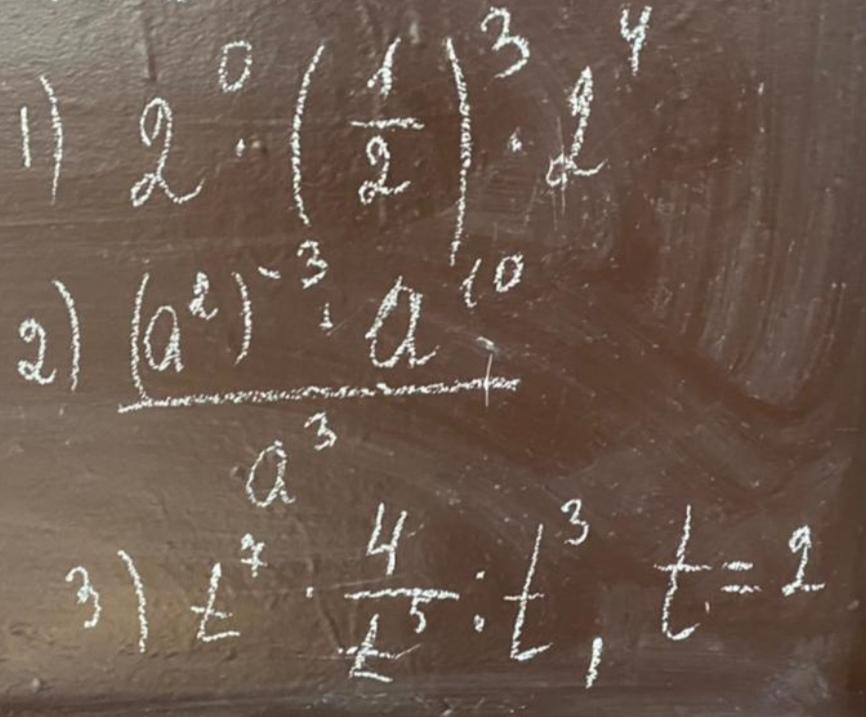 1) 2⁰ · (1/2)³ · 2⁴
2) (a²)⁻³ · a¹⁰ / a³
3) t⁷ · 4/t⁵ : t³, t = 2